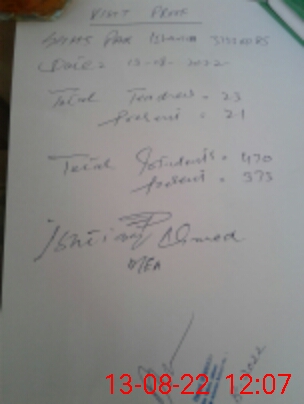 VISIT PROF
GHHS Pak Islamia 31320085
Date: 13-08-2022
Total Teachers = 23
Present = 21
Total Students = 470
Present = 373
Ishtiaq Ahmad
MEA
2022
13-08-22 12:07